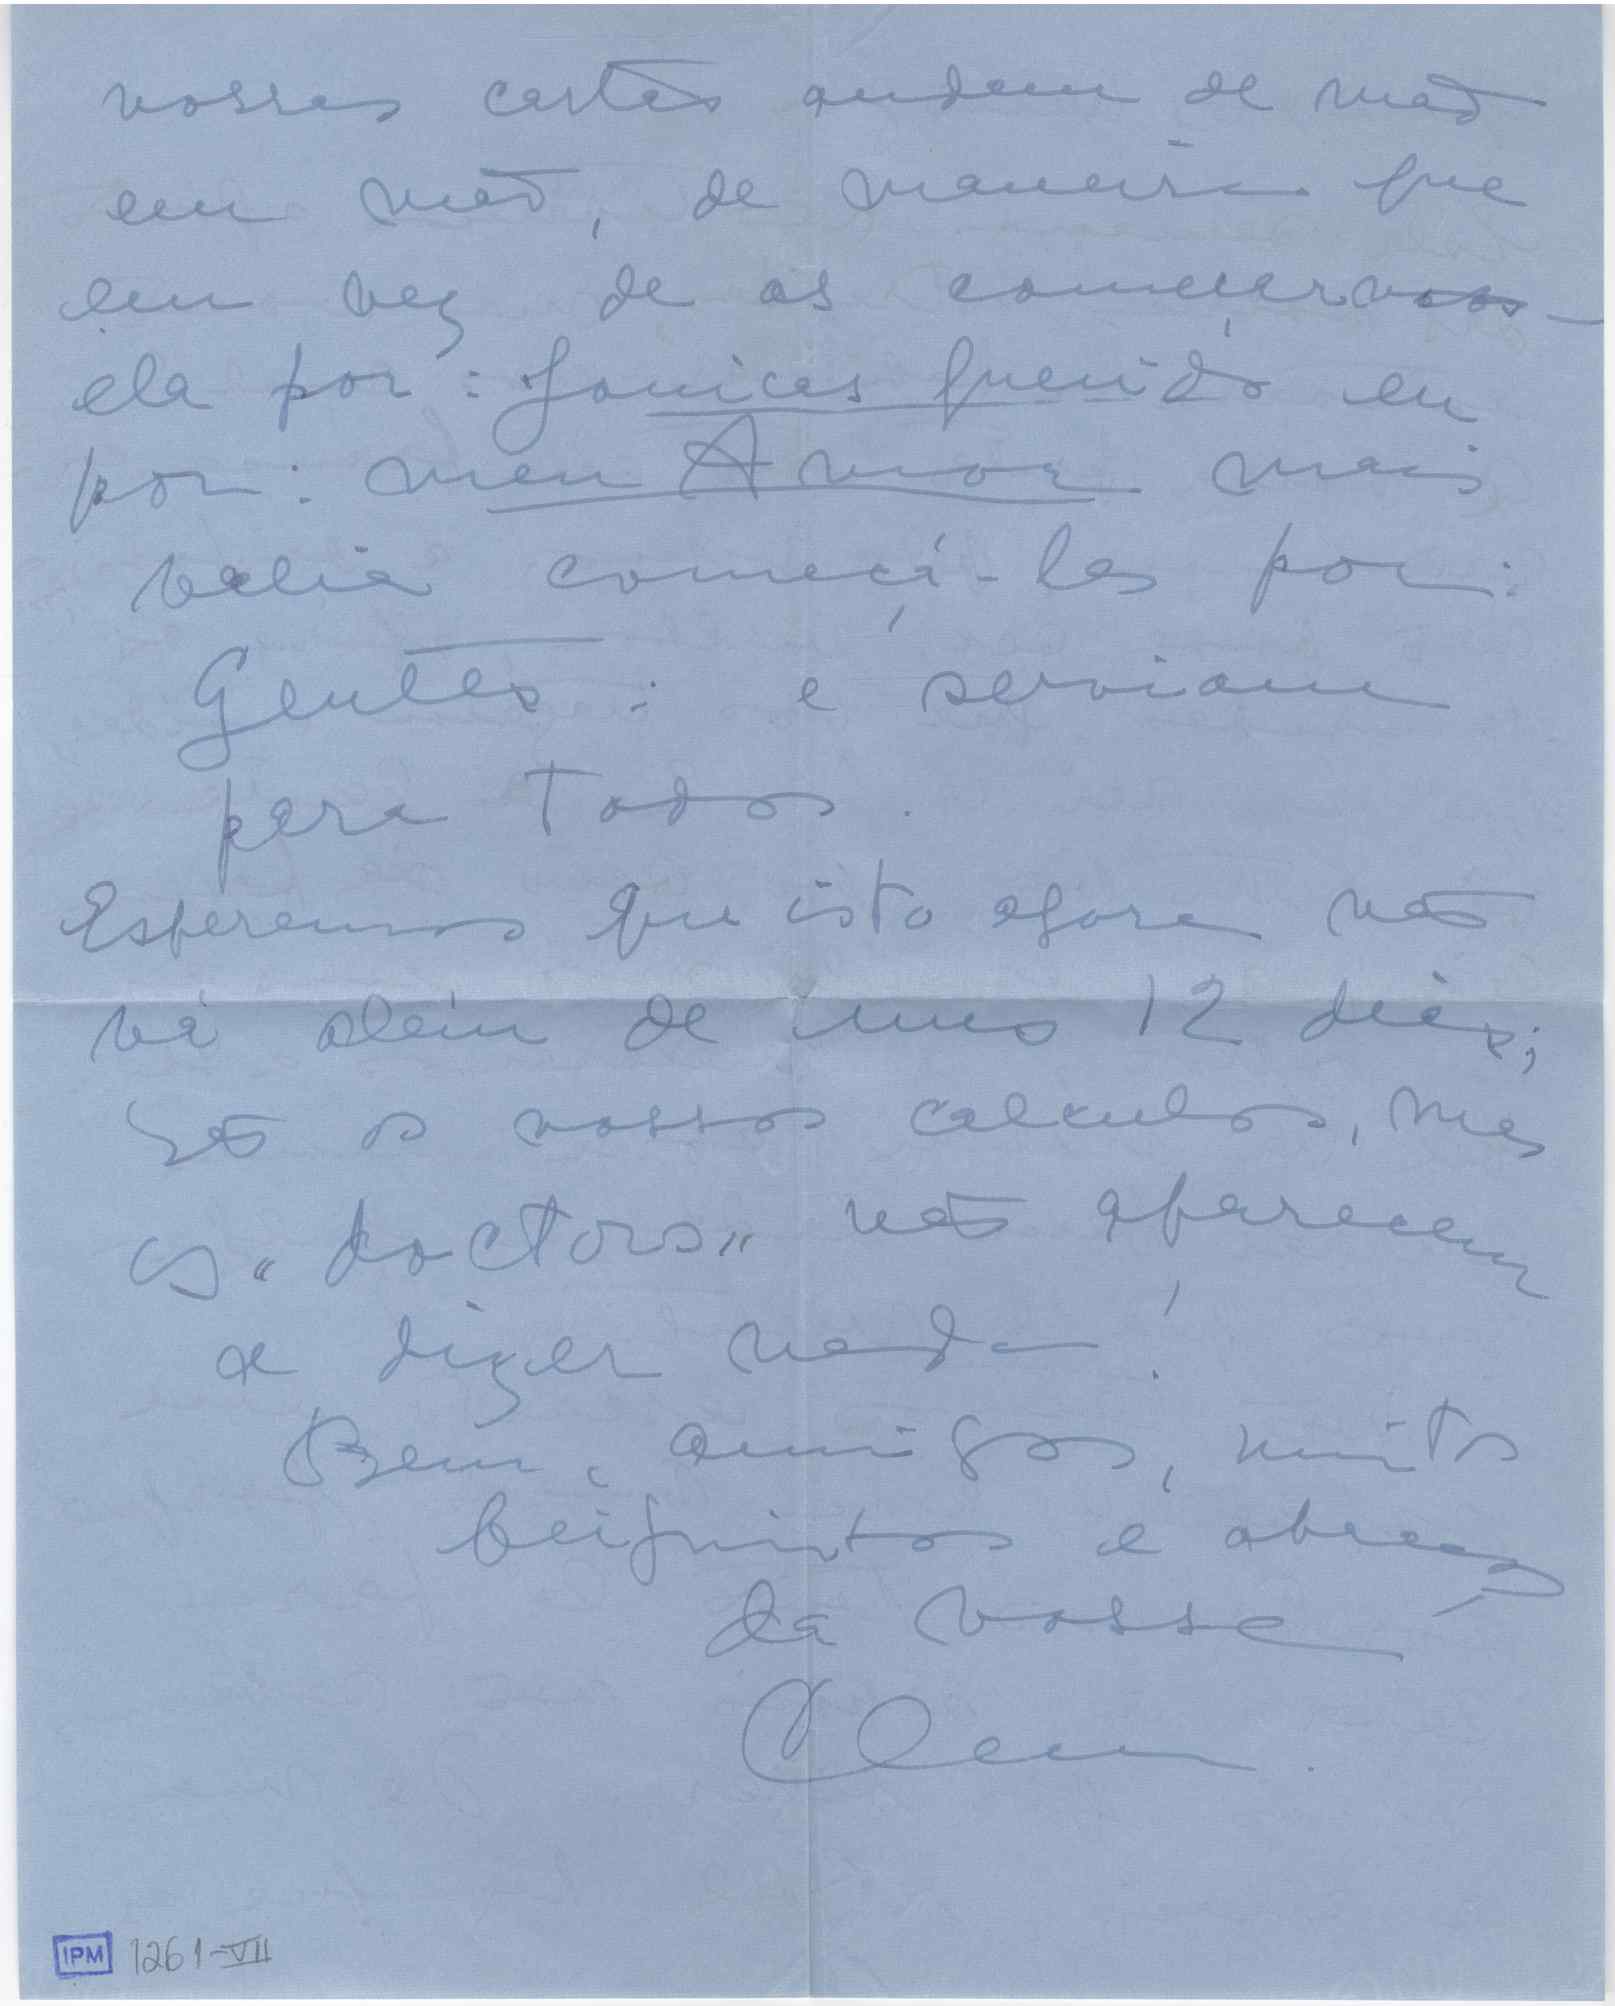 nossas cartas andam de mão
em mão, de maneira que
em vez de as começarmos
ela por: Jonicas querido eu
por: meu Amor mais
valia começá-las por:
Gentes: e serviam
para Todos.
Esperemos que isto agora não
vá além de uns 12 dias;
são os nossos calculos, mas
os "doctors" não aparecem
a dizer nada!
Bem, amigos, muitos
beijinhos e abraços
da vossa
Clem.
IPM 1261-VII